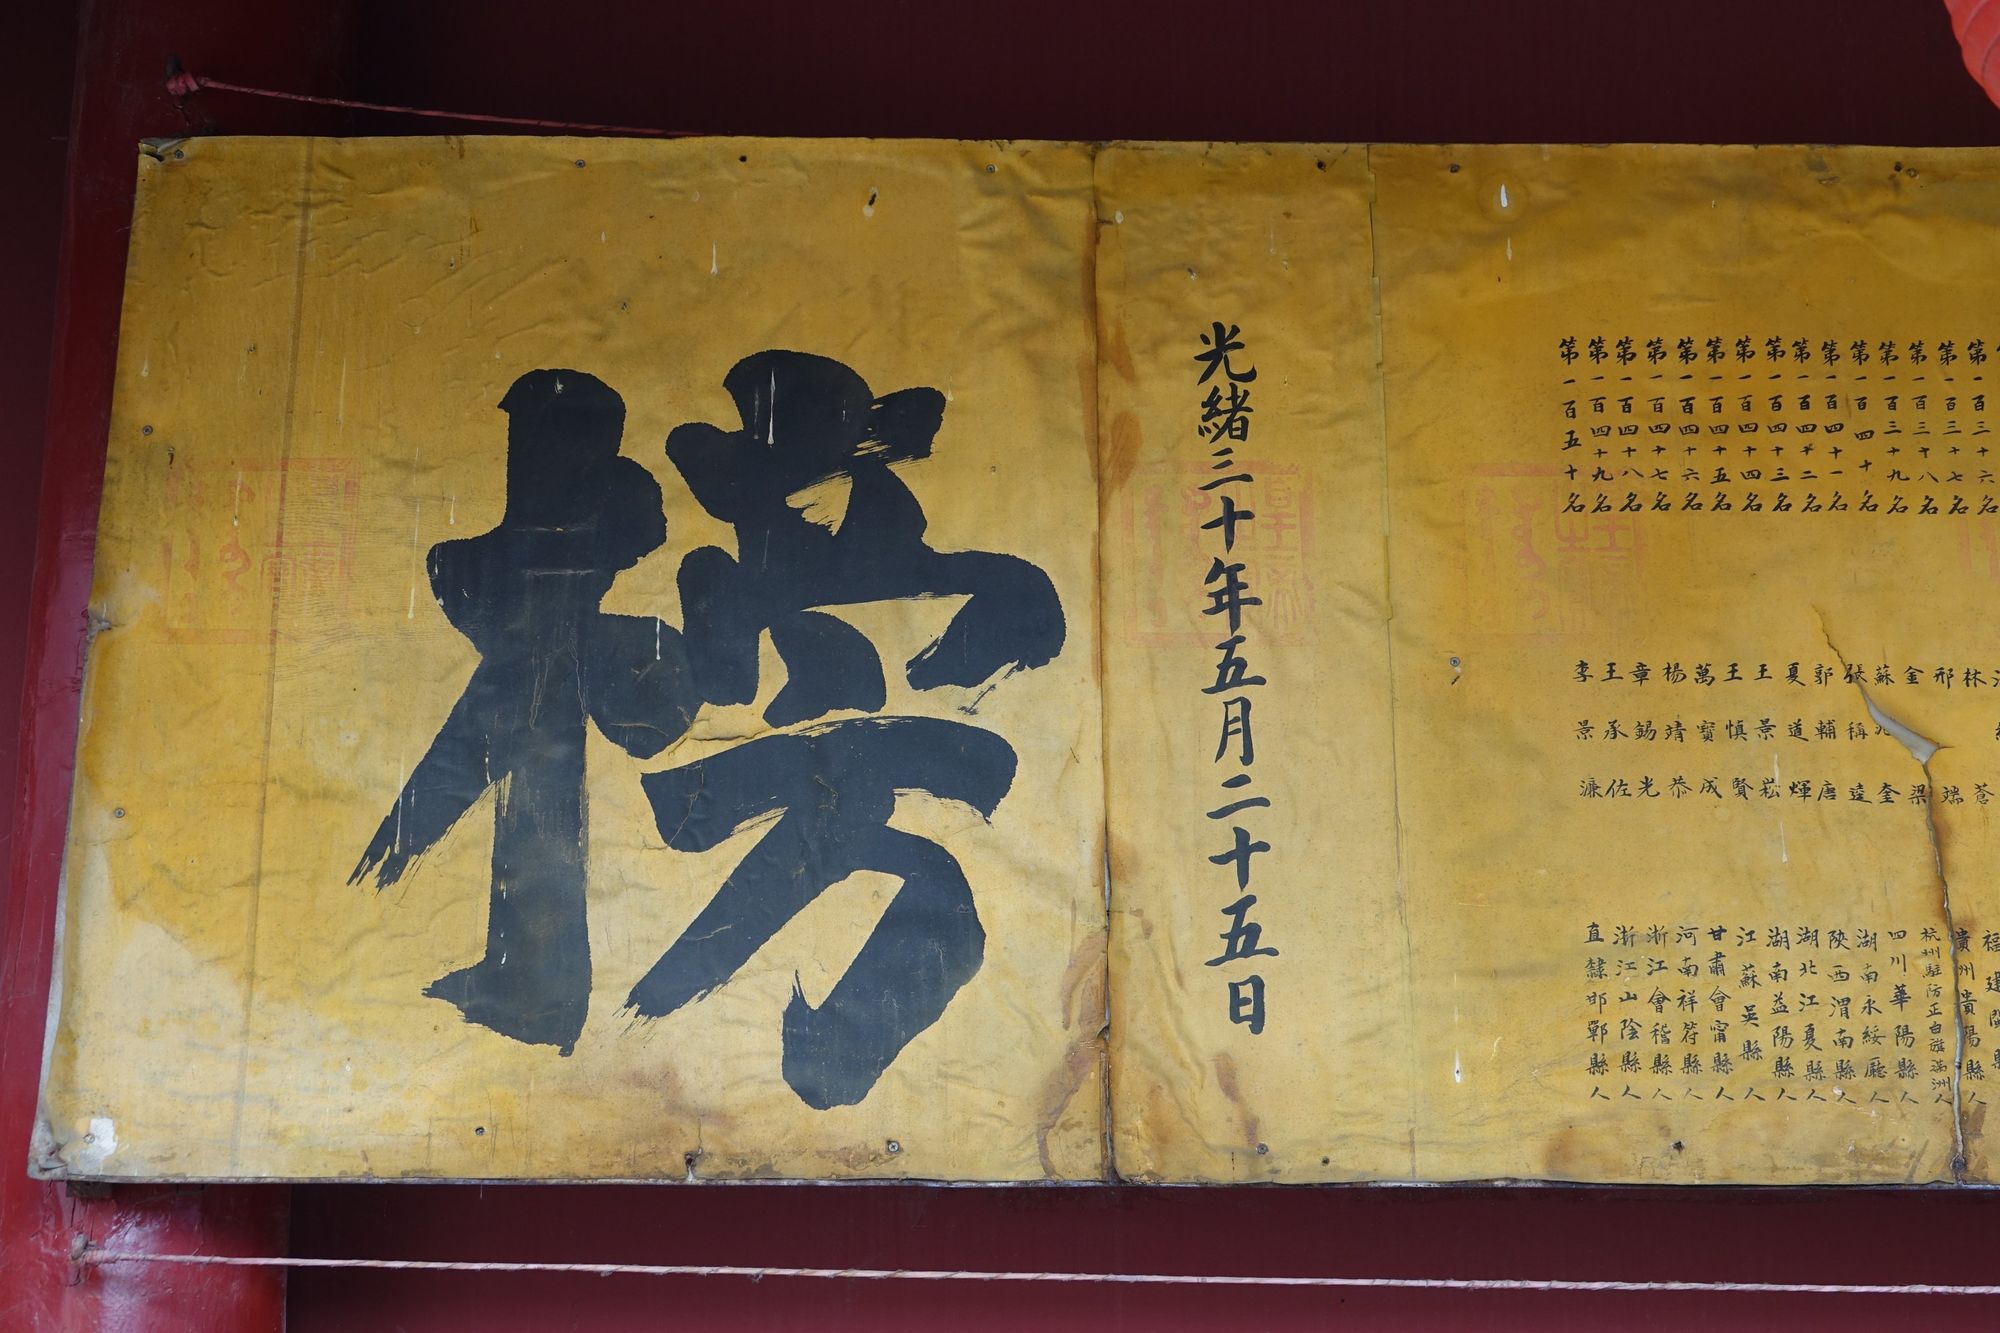 第一百三十六名
第一百三十七名 林蒼 福建閩縣
第一百三十八名 邢端 貴州貴陽縣人
第一百三十九名 金梁 杭州駐防正白旗滿洲人
第一百四十名 蘇兆奎 四川華陽縣人
第一百四十一名 張稱逵 湖南永綏廳人
第一百四十二名 郭輔唐 陝西渭南縣人
第一百四十三名 夏道煇 湖北江夏縣人
第一百四十四名 王景崧 湖南益陽縣人
第一百四十五名 王慎賢 江蘇吳縣人
第一百四十六名 萬寶成 甘肅會甯縣人
第一百四十七名 楊靖恭 河南祥符縣人
第一百四十八名 章錫光 浙江會稽縣人
第一百四十九名 王承佐 浙江山陰縣人
第一百五十名 李景濂 直隸邯鄲縣人
光緒三十年五月二十五日
榜